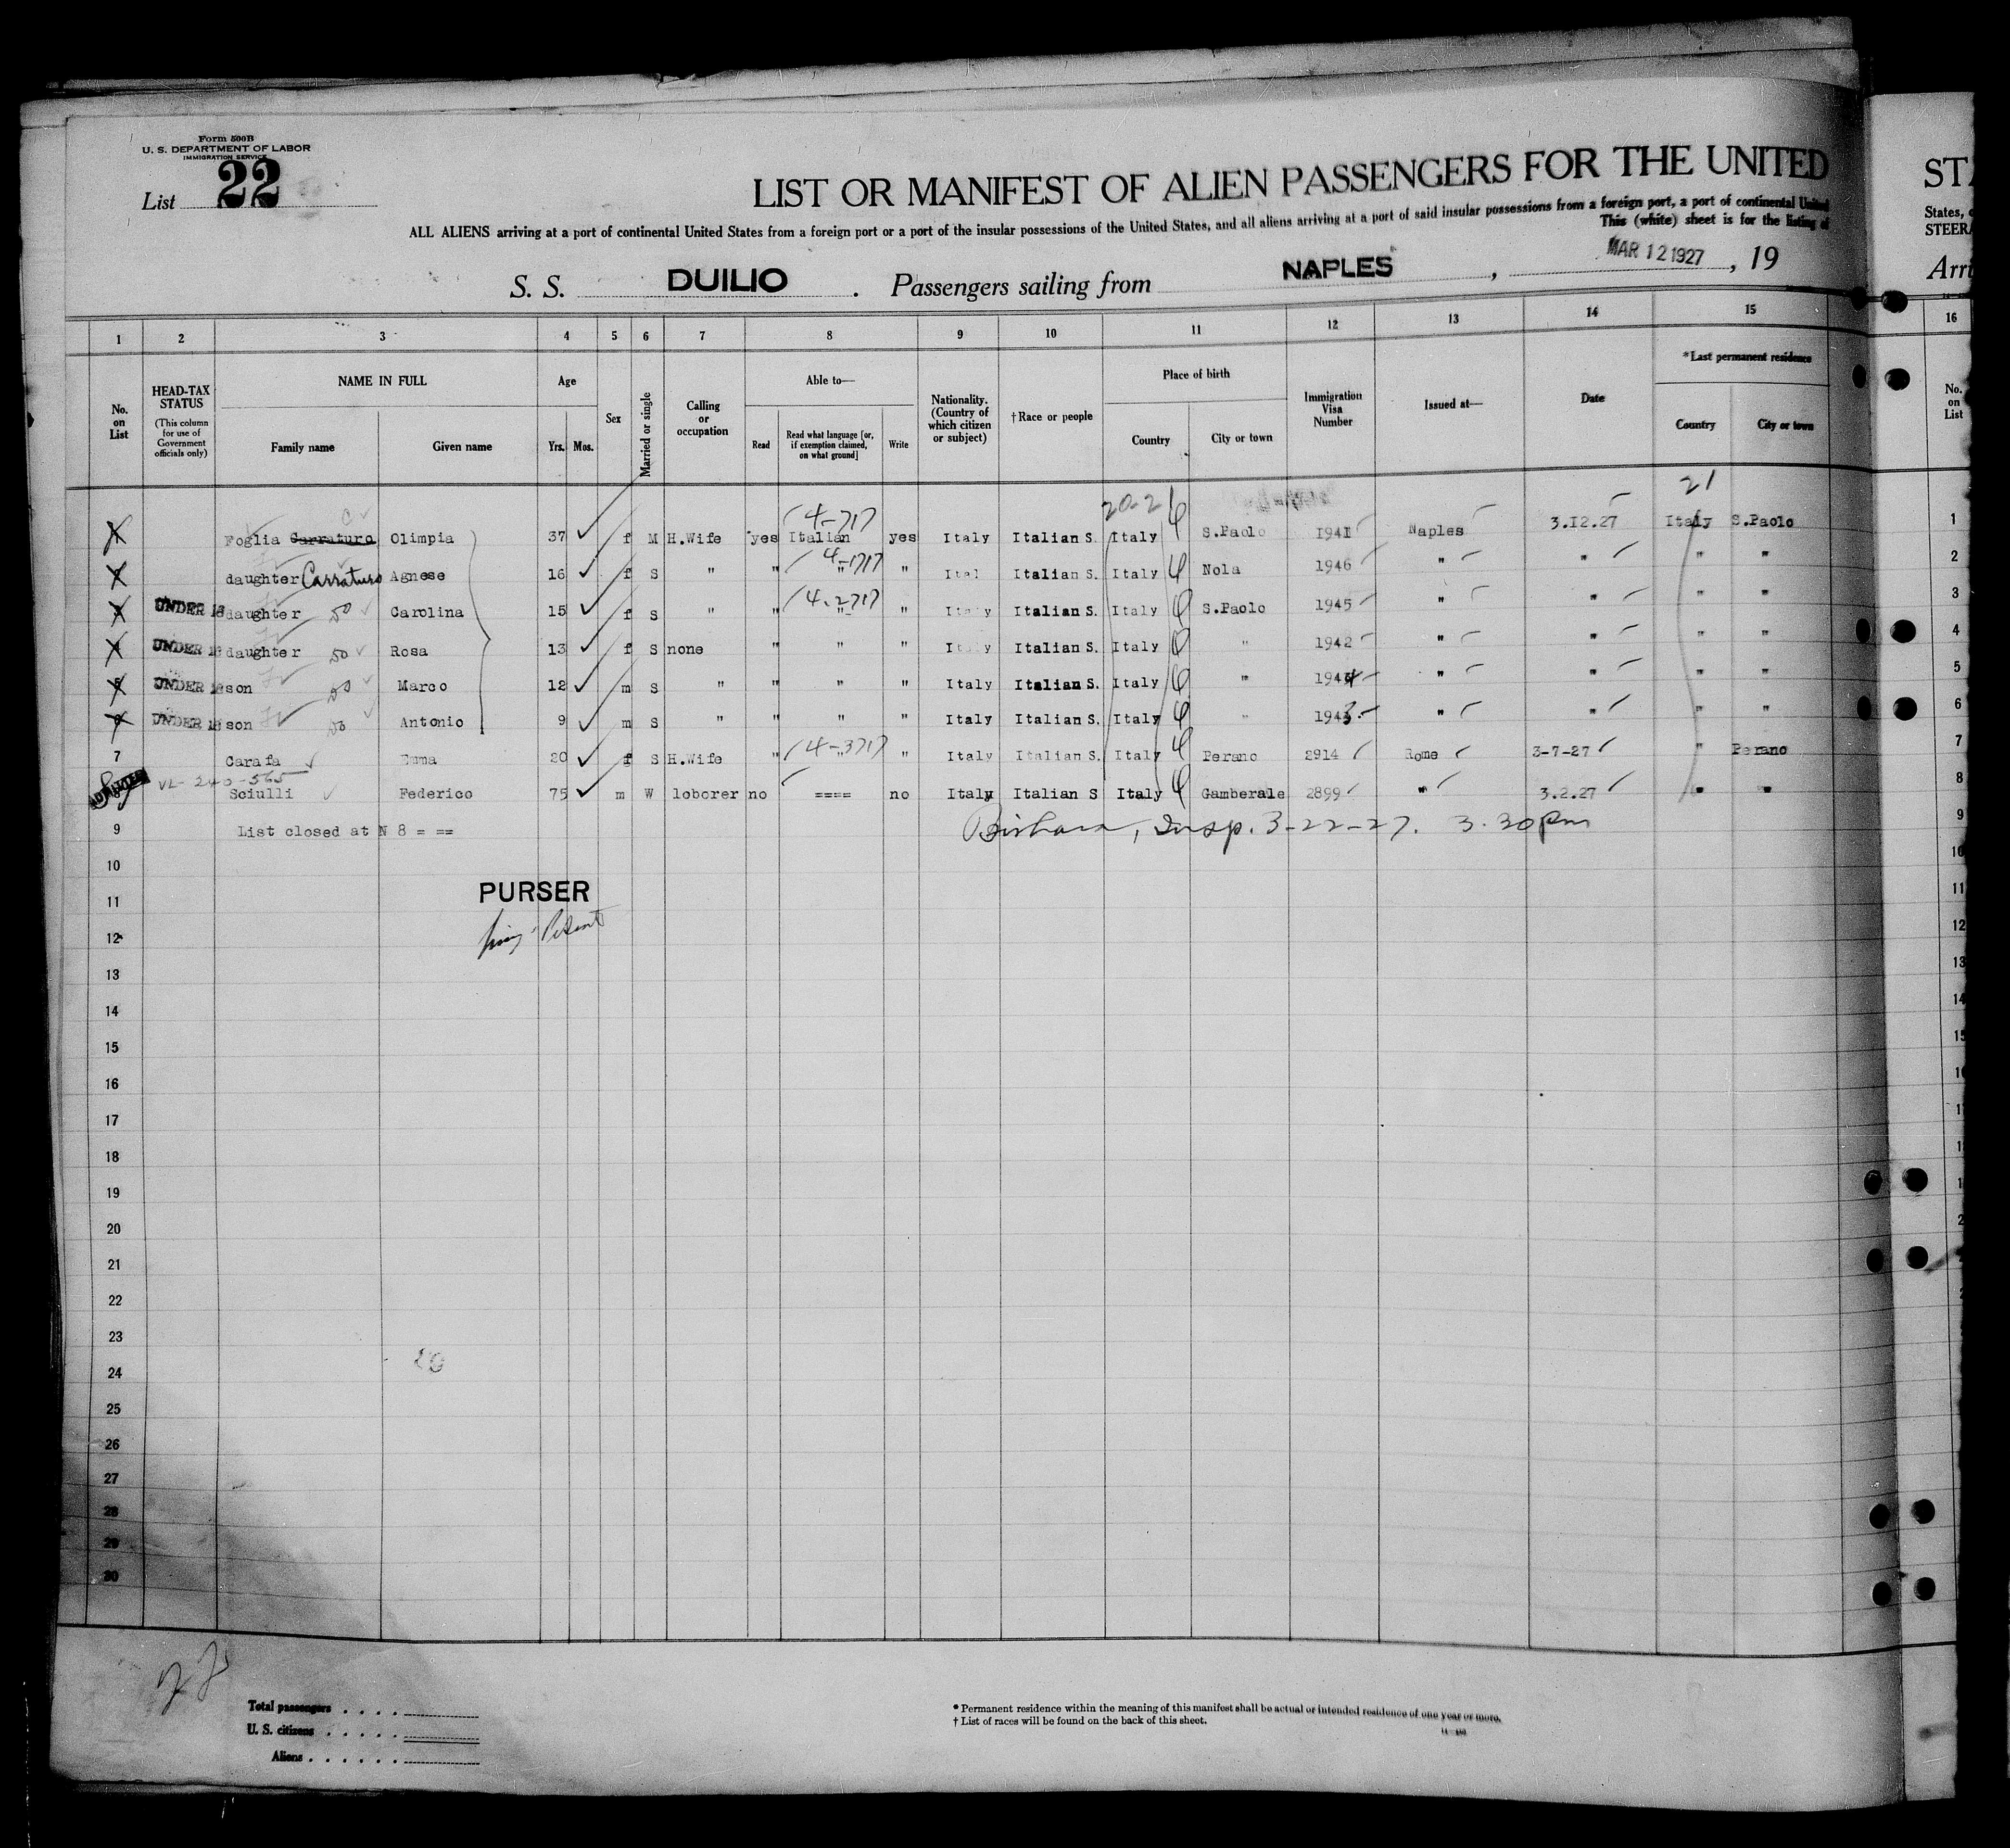 Form 500B
U. S. DEPARTMENT OF LABOR
IMMIGRATION SERVICE
List 22
LIST OR MANIFEST OF ALIEN PASSENGERS FOR THE UNITED
ALL ALIENS arriving at a port of continental United States from a foreign port or a port of the insular possessions of the United States, and all aliens arriving at a port of said insular possessions from a foreign port, a port of continental United
This (white) sheet is for the listing of
S. S. DUILIO . Passengers sailing from NAPLES , MAR 12 1927 , 19
STA
States, o
STEERA
Arri
1 2 3 4 5 6 7 8 9 10 11 12 13 14 15 16
No. on List
HEAD-TAX STATUS (This column for use of Government officials only)
NAME IN FULL
Family name Given name
Age
Yrs. Mos.
Sex
Married or single
Calling or occupation
Able to—
Read
Read what language [or, if exemption claimed, on what ground]
Write
Nationality. (Country of which citizen or subject)
†Race or people
Place of birth
Country City or town
Immigration Visa Number
Issued at—
Date
*Last permanent residence
Country City or town
No. on List
20-26 21
(4-717
1 Foglia Carraturo Olimpia 37 f M H.Wife yes Italian yes Italy Italian S. Italy S.Paolo 1941 Naples 3.12.27 Italy S.Paolo 1
4-1717
2 daughter Carraturo Agnese 16 f S " " " " Ital Italian S. Italy Nola 1946 " " " " 2
(4-2717
3 UNDER 16 daughter 50 Carolina 15 f S " " " " Italy Italian S. Italy S.Paolo 1945 " " " " 3
4 UNDER 16 daughter 50 Rosa 13 f S none " " " Italy Italian S. Italy " 1942 " " " " 4
5 UNDER 16 son 50 Marco 12 m S " " " " Italy Italian S. Italy " 1944 " " " " 5
6 UNDER 16 son 50 Antonio 9 m S " " " " Italy Italian S. Italy " 1943 " " " " 6
7 Carafa Emma 20 f S H.Wife " (4-3717 " Italy Italian S. Italy Perano 2914 Rome 3-7-27 " Perano 7
ADMITTED
8 Sciulli Federico 75 m W loborer no ==== no Italy Italian S Italy Gamberale 2899 " 3.2.27 " " 8
9 List closed at N 8 = == Insp. 3-22-27. 3.30 Pm 9
10 10
PURSER
11 11
12 12
13 13
14 14
15 15
16
17
18
19
20
21
22
23
24
25
26
27
28
29
30
Total passengers . . . .
U. S. citizens . . . . .
Aliens . . . . . .
* Permanent residence within the meaning of this manifest shall be actual or intended residence of one year or more.
† List of races will be found on the back of this sheet.